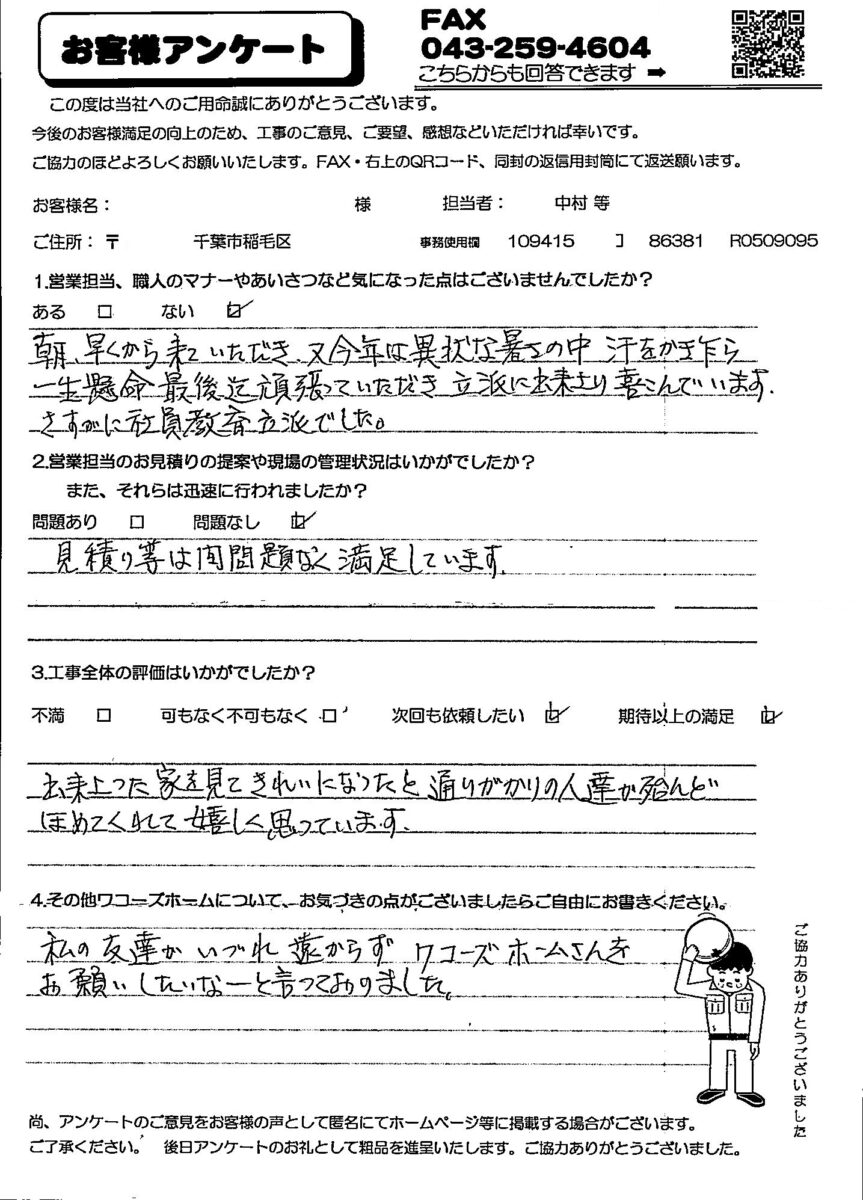 お客様アンケート
FAX
043-259-4604
こちらからも回答できます ➡
この度は当社へのご用命誠にありがとうございます。
今後のお客様満足の向上のため、工事のご意見、ご要望、感想などいただければ幸いです。
ご協力のほどよろしくお願いいたします。FAX・右上のQRコード、同封の返信用封筒にて返送願います。
お客様名： 様 担当者： 中村 等
ご住所：〒 千葉市稲毛区 事務使用欄 109415 】 86381 R0509095
1.営業担当、職人のマナーやあいさつなど気になった点はございませんでしたか？
ある □ ない ☑
朝、早くから来ていただき、又今年は異状な暑さの中 汗をかき乍ら
一生懸命 最後迄頑張っていただき 立派に出来上り喜こんでいます.
さすがに社員教育立派でした。
2.営業担当のお見積りの提案や現場の管理状況はいかがでしたか？
また、それらは迅速に行われましたか？
問題あり □ 問題なし ☑
見積り等は問題なく満足しています.
3.工事全体の評価はいかがでしたか？
不満 □ 可もなく不可もなく □ 次回も依頼したい ☑ 期待以上の満足 ☑
出来上った家を見てきれいになったと通りがかりの人達が殆んど
ほめてくれて嬉しく思っています.
4.その他ワコーズホームについて、お気づきの点がございましたらご自由にお書きください。
私の友達が いづれ 遠からず ワコーズホームさんを
お願いしたいなーと言っておりました。
ご協力ありがとうございました
尚、アンケートのご意見をお客様の声として匿名にてホームページ等に掲載する場合がございます。
ご了承ください。 後日アンケートのお礼として粗品を進呈いたします。ご協力ありがとうございました。